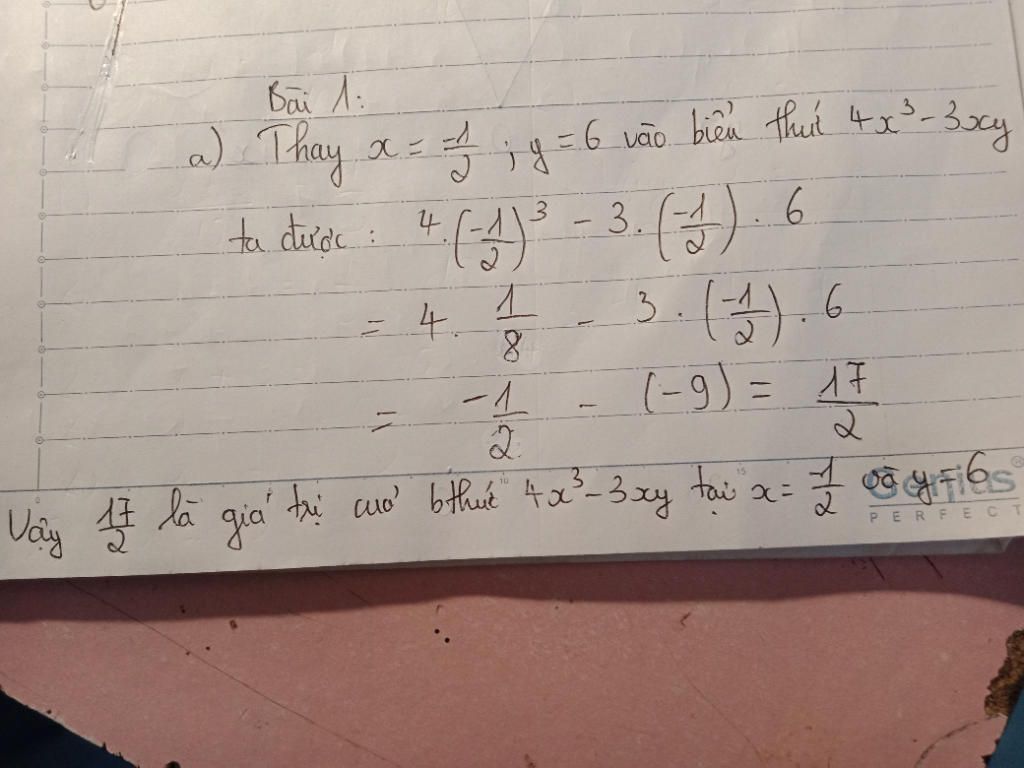 Bài 1:
a) Thay x = -1/2 ; y = 6 vào biểu thức 4x³ - 3xy
ta được : 4.(-1/2)³ - 3.(-1/2) . 6
= 4. 1/8 - 3 . (-1/2) . 6
= -1/2 - (-9) = 17/2
Vậy 17/2 là giá trị của bthức 4x³ - 3xy tại x = -1/2 và y = 6
Genius®
PERFECT